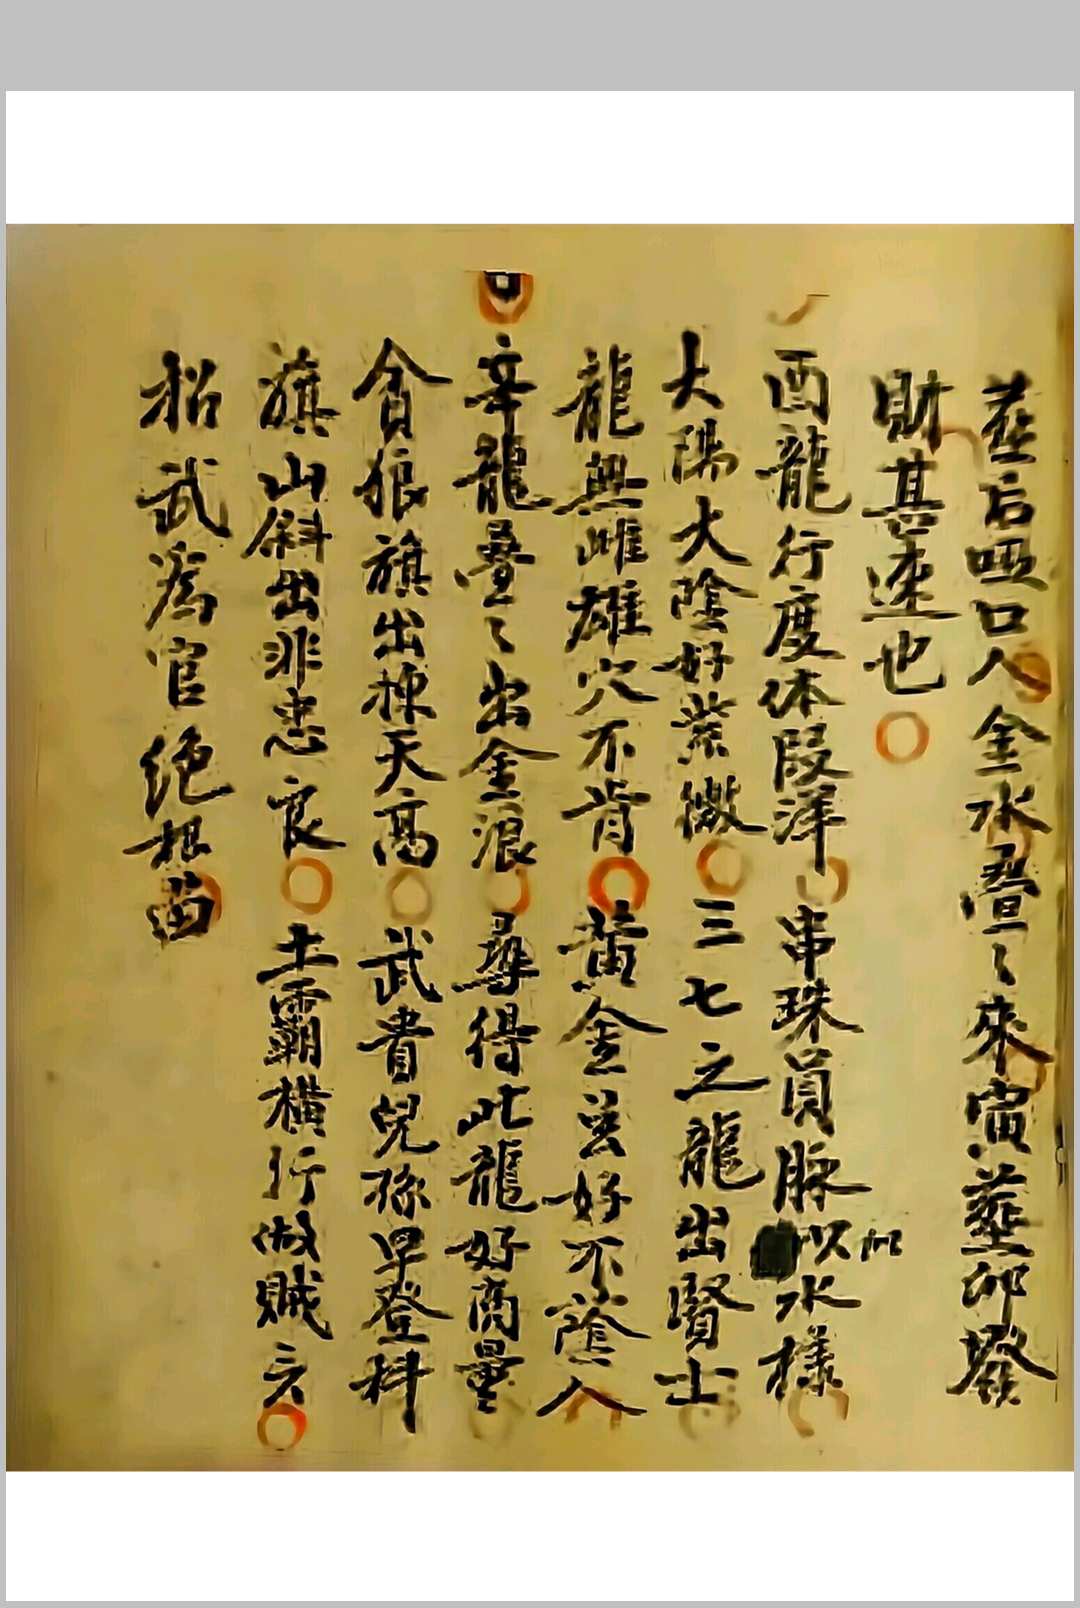 葬后哑口人全水疊〻來寅葬卯發
財甚速也
酉龍行度体段洋串珠員脉似水樣
似
太陽太陰好紫微三七之龍出賢士
龍無雌雄穴不肯黃金雖好不蔭人
辛龍疊〻出金浪尋得此龍好商量
貪狼旗出棟天高武貴兒孫早登科
旗山斜出非忠良土霸橫行做賊
招武爲官絶根苗